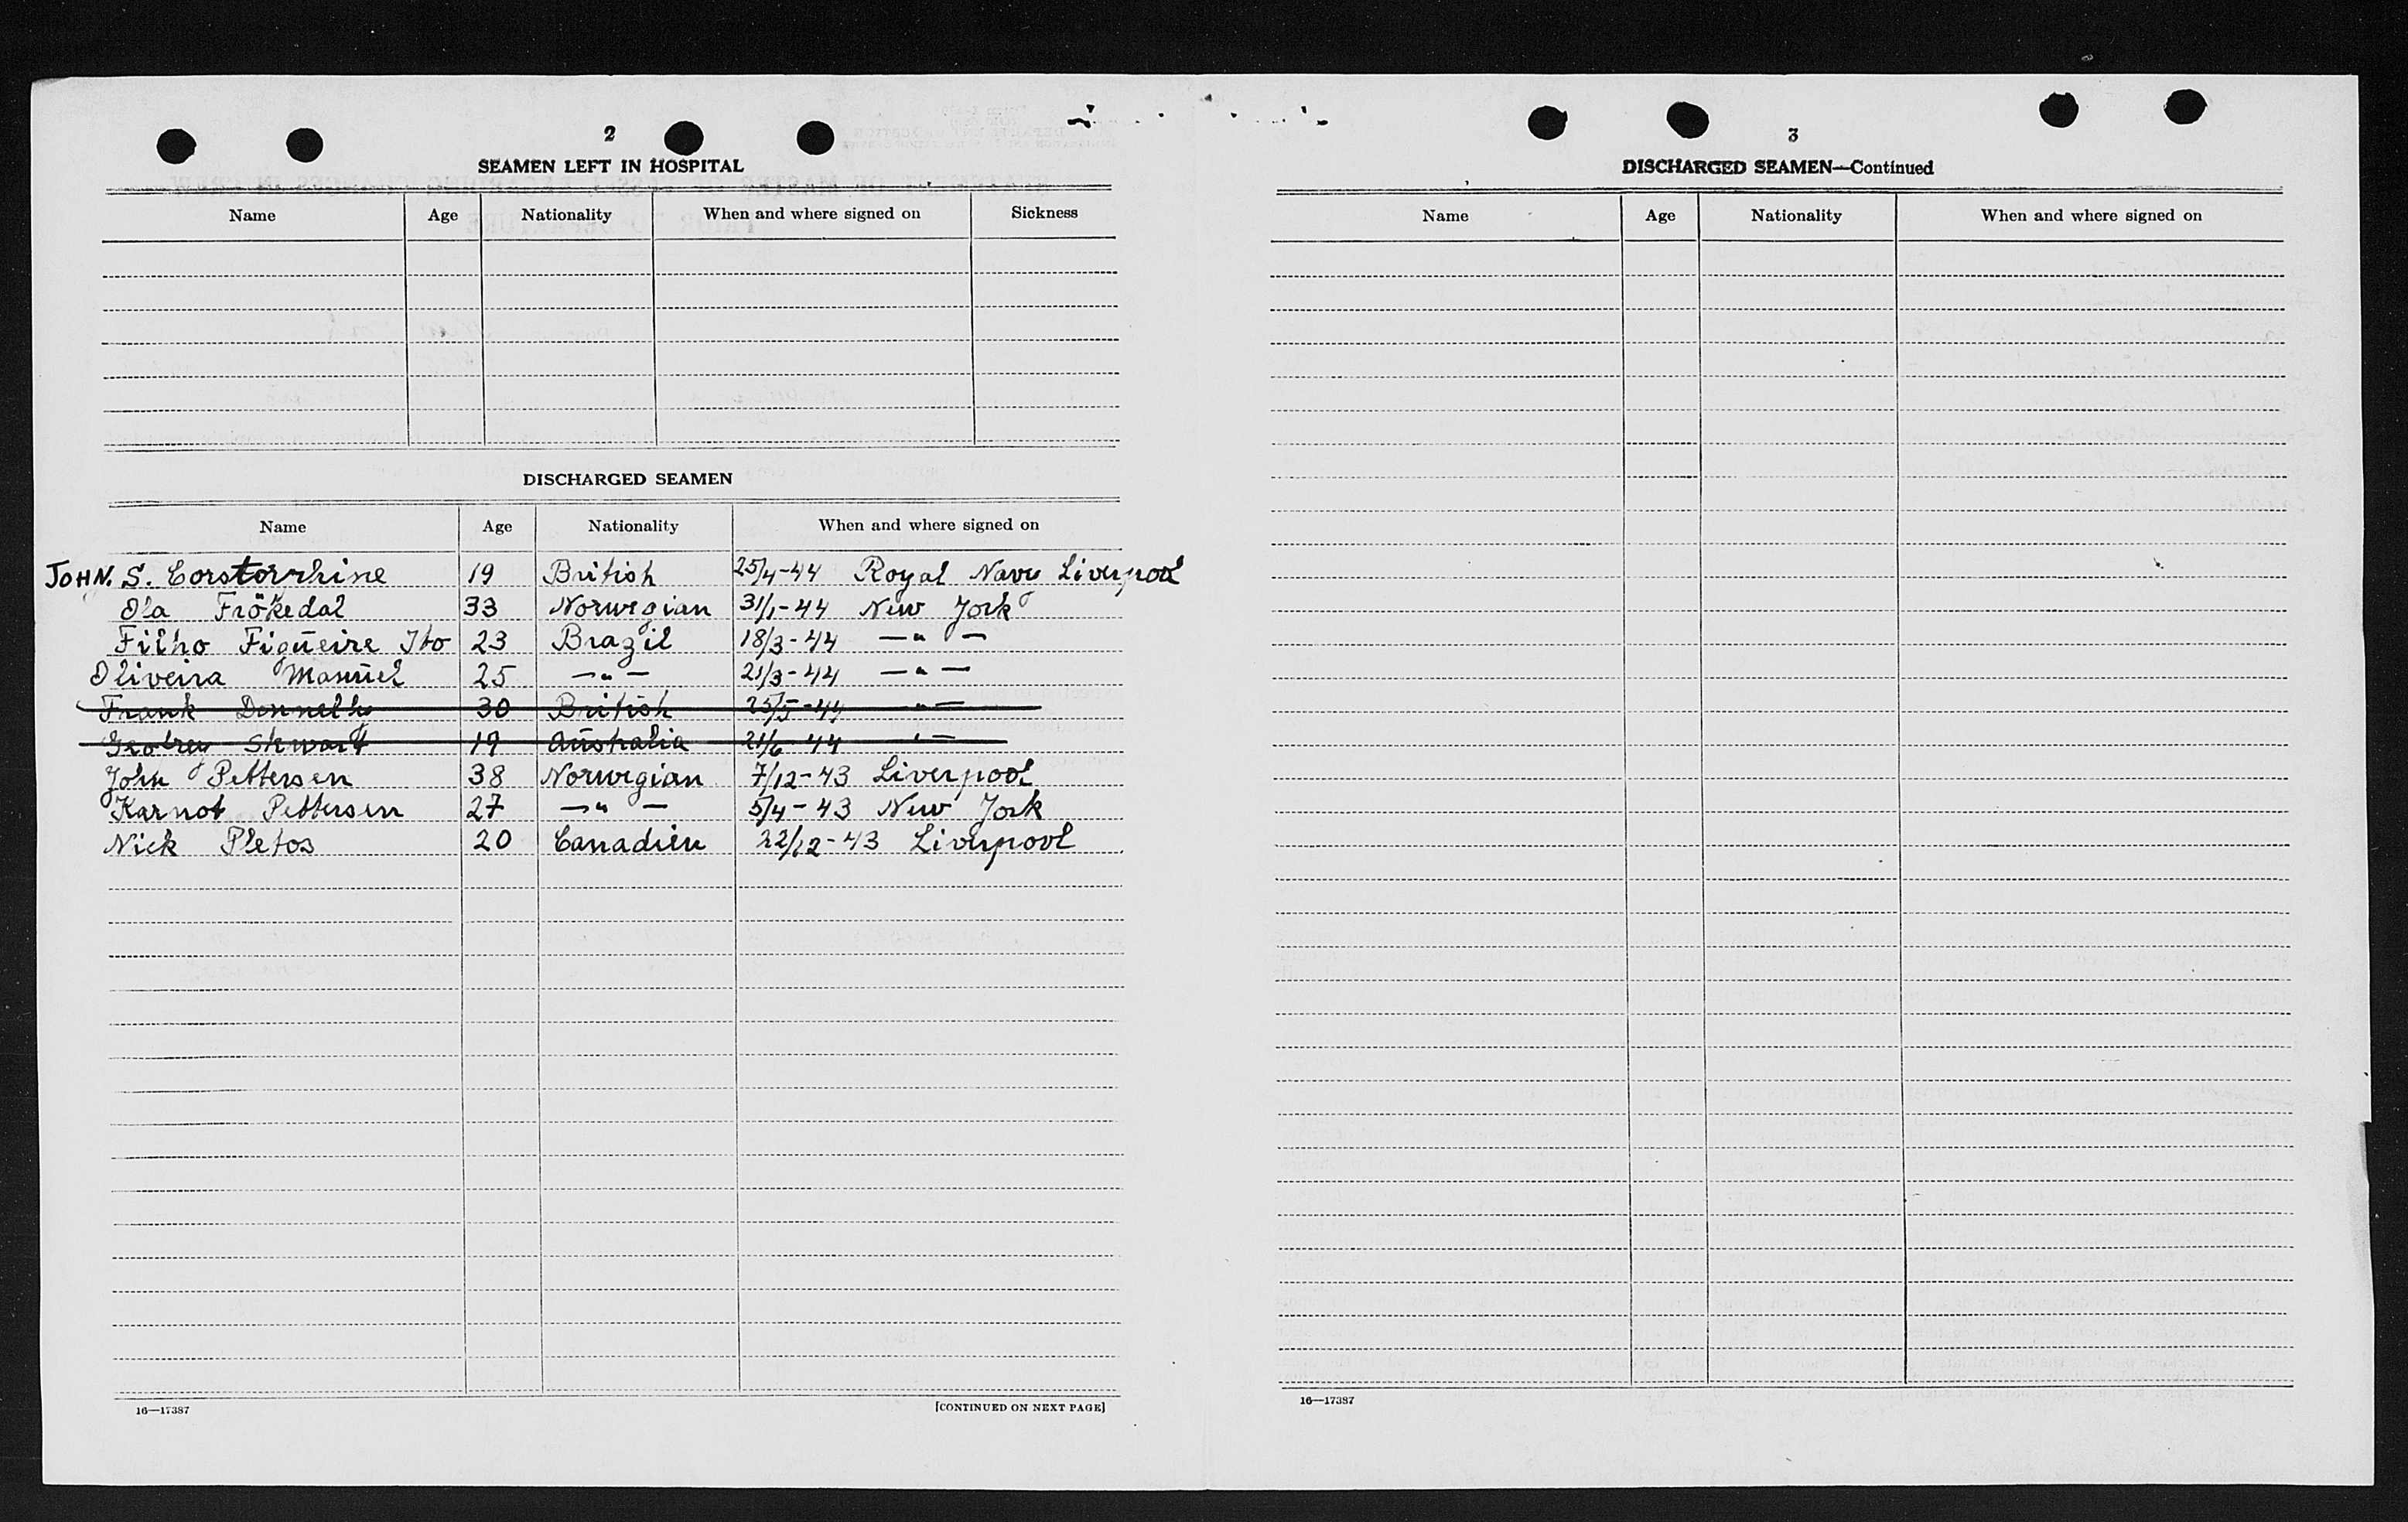 2
SEAMEN LEFT IN HOSPITAL
Name Age Nationality When and where signed on Sickness
DISCHARGED SEAMEN
Name Age Nationality When and where signed on
JOHN. S. Corstorrhine 19 British 25/4-44 Royal Navy Liverpool
Ola Frökedal 33 Norwegian 31/1-44 New York
Filho Figueire Ito 23 Brazil 18/3-44 —"—
Oliveira Manuel 25 —"— 21/3-44 —"—
Frank Donnelly 30 British 25/5-44 "—
Geofrey Stewart 19 Australia 21/6-44 "—
John Pettersen 38 Norwegian 7/12-43 Liverpool
Karnot Pettersen 27 —"— 5/4-43 New York
Nick Pletos 20 Canadien 22/12-43 Liverpool
16—17387 [CONTINUED ON NEXT PAGE]
3
DISCHARGED SEAMEN—Continued
Name Age Nationality When and where signed on
16—17387